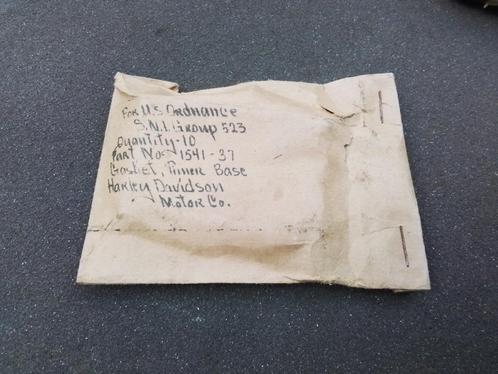 For U.S. Ordnance
S.N.L Group 523
Quantity-10
Part No- 1541-37
Gasket, Timer Base
Harley Davidson
Motor Co.